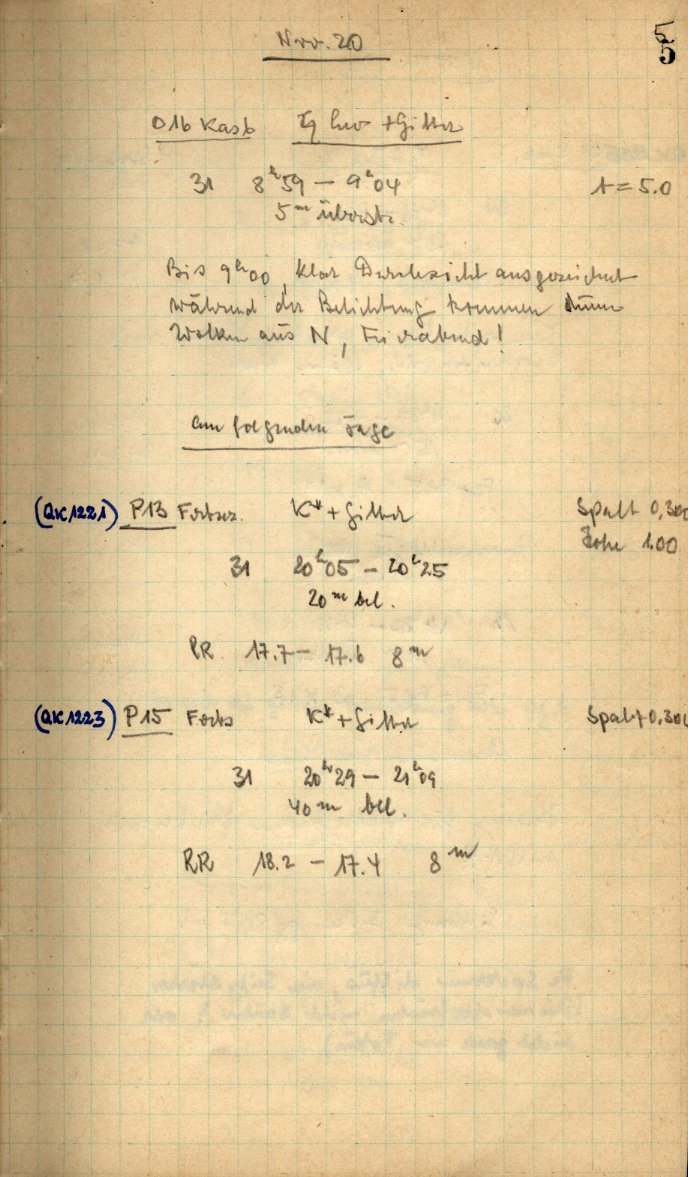 Nov. 20
5
5
016 Kasb + Gitter
31 8h59 – 9h04 t = 5.0
5m überst.
Bis 9h00 klar Durchsicht ausgezeichnet
während der Belichtung kommen dünne
Wolken aus N, Feierabend!
Am folgenden Tage
(QK1221) P13 K* + Gitter Spalt 0,300
Höhe 1.00
31 20h05 – 20h25
20m bel.
RR 17.7 – 17.6 8m
(QK1223) P15 K* + Gitter Spalt 0,300
31 20h29 – 21h09
40m bel.
RR 18.2 – 17.4 8m